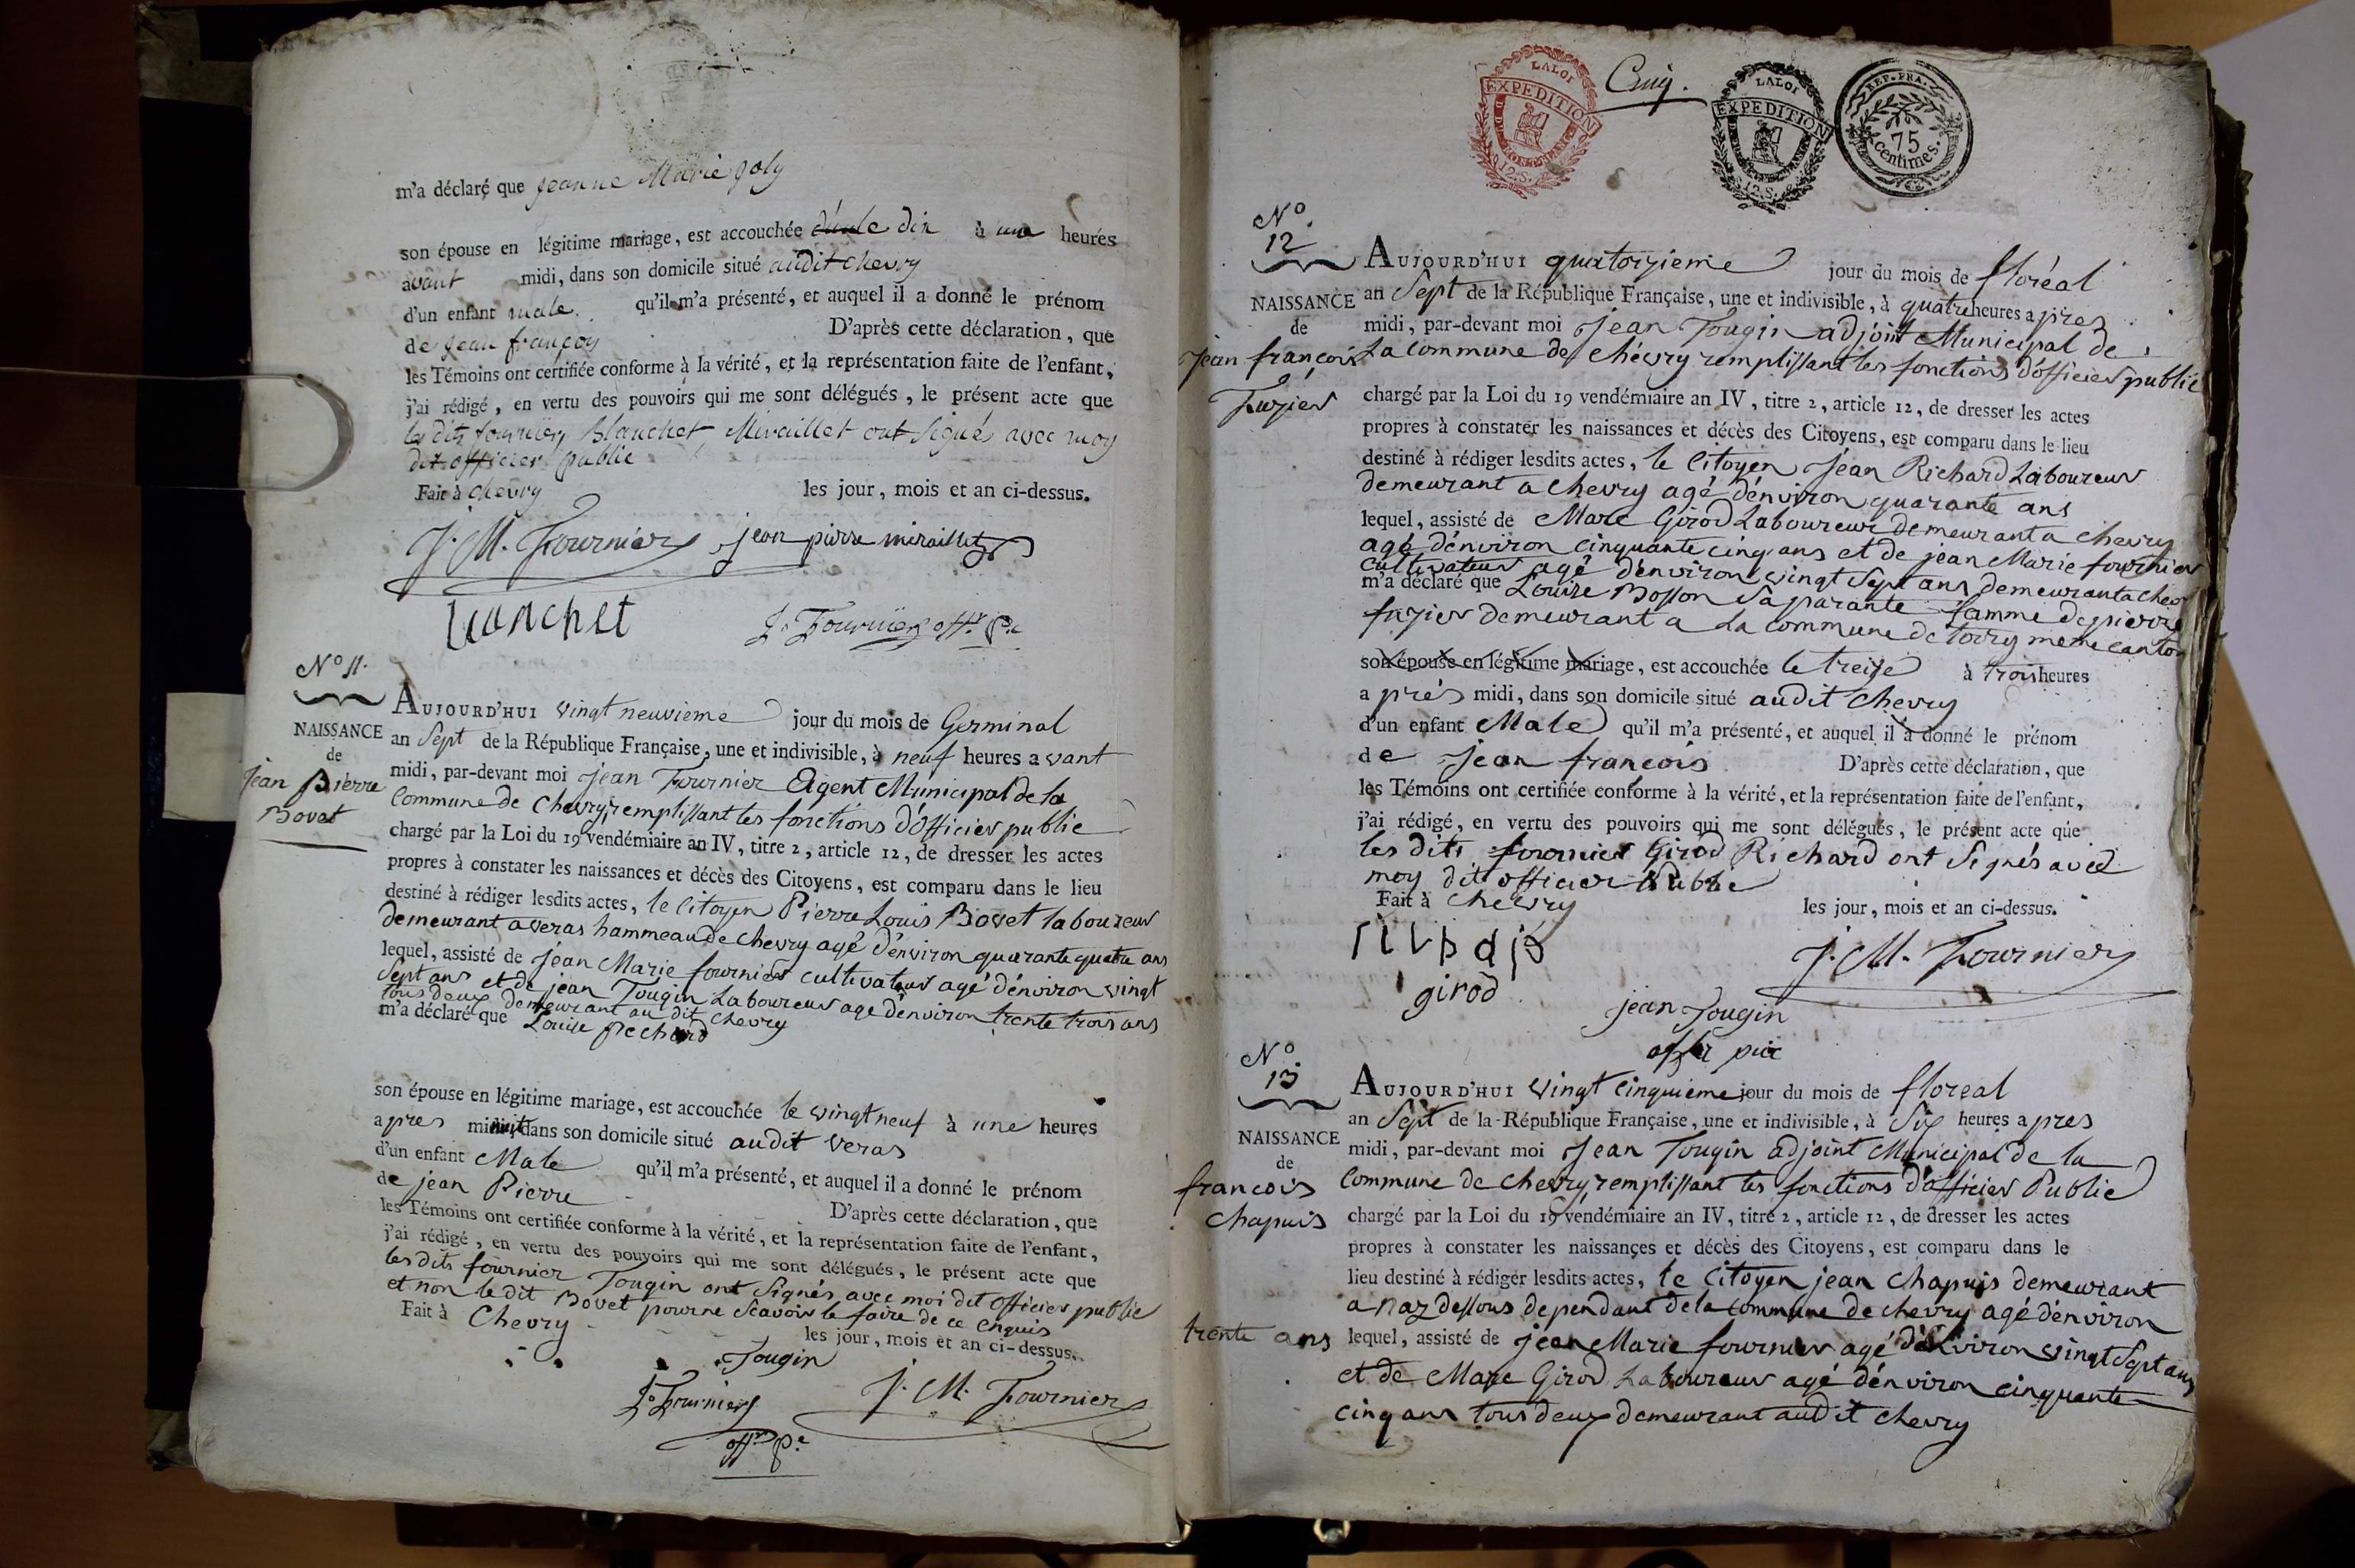 m'a déclaré que jeanne Marie Joly
son épouse en légitime mariage, est accouchée le dix à une heures
avant midi, dans son domicile situé audit chevry
d'un enfant male. qu'il m'a présenté, et auquel il a donné le prénom
de jean françois D'après cette déclaration, que
les Témoins ont certifiée conforme à la vérité, et la représentation faite de l'enfant,
j'ai rédigé, en vertu des pouvoirs qui me sont délégués, le présent acte que
les dits fournier, Blanchet, Miraillet ont signés avec moy
dit officier public
Fait à chevry les jour, mois et an ci-dessus.
J. M. Fournier jean pierre miraillet
blanchet
J. Fournier offr. pc
N° 11.
NAISSANCE
de
jean Pierre
Bovet
AUJOURD'HUI vingt neuvieme jour du mois de Germinal
an Sept de la République Française, une et indivisible, à neuf heures avant
midi, par-devant moi jean Fournier Agent Municipal de la
Commune de Chevry, remplissant les fonctions d'Officier public
chargé par la Loi du 19 vendémiaire an IV, titre 2, article 12, de dresser les actes
propres à constater les naissances et décès des Citoyens, est comparu dans le lieu
destiné à rédiger lesdits actes, le Citoyen Pierre Louis Bovet laboureur
demeurant a veras hammeau de chevry agé d'énviron quarante quatre ans
lequel, assisté de jean Marie fournier cultivateur agé d'énviron vingt
Sept ans et de jean Tougin Laboureur agé d'énviron trente trois ans
tous deux demeurant au dit chevry
m'a déclaré que Louise Pechard
son épouse en légitime mariage, est accouchée le vingt neuf à une heures
apres minuit dans son domicile situé audit veras
d'un enfant Male qu'il m'a présenté, et auquel il a donné le prénom
de jean Pierre D'après cette déclaration, que
les Témoins ont certifiée conforme à la vérité, et la représentation faite de l'enfant,
j'ai rédigé, en vertu des pouvoirs qui me sont délégués, le présent acte que
les dits fournier Tougin ont signés avec moi dit officier public
et non le dit Bovet pour ne scavoir le faire de ce enquis
Fait à Chevry les jour, mois et an ci-dessus.
Tougin
J. Fournier J. M. Fournier
offr pc
LA LOI
EXPEDITION
12.S.
Cinq.
LA LOI
EXPEDITION
12.S.
REP. FRA.
75
centimes.
N°
12
NAISSANCE
de
jean francois
Fuzier
AUJOURD'HUI quatorzieme jour du mois de floréal
an Sept de la République Française, une et indivisible, à quatre heures apres
midi, par-devant moi Jean Tougin adjoint Municipal de
La Commune de chévry remplissant les fonctions d'officier public
chargé par la Loi du 19 vendémiaire an IV, titre 2, article 12, de dresser les actes
propres à constater les naissances et décès des Citoyens, est comparu dans le lieu
destiné à rédiger lesdits actes, le Citoyen Jean Richard Laboureur
demeurant a chevry agé d'énviron quarante ans
lequel, assisté de Marc Girod Laboureur demeurant a chevry
agé d'énviron cinquante cinq ans et de jean Marie fournier
cultivateur agé d'énviron vingt Sept ans demeurant a chevry
m'a déclaré que Louise Bosson Sa parante famme de pierre
fuzier demeurant a La commune de torry meme canton
son épouse en légitime mariage, est accouchée le treize à trois heures
a prés midi, dans son domicile situé audit chevry
d'un enfant Male qu'il m'a présenté, et auquel il a donné le prénom
de Jean francois D'après cette déclaration, que
les Témoins ont certifiée conforme à la vérité, et la représentation faite de l'enfant,
j'ai rédigé, en vertu des pouvoirs qui me sont délégués, le présent acte que
les dits fournier Girod Richard ont Signés avec
moy dit officier Public
Fait à chevry les jour, mois et an ci-dessus.
J. M. Fournier
girod
jean Tougin
N°
13
NAISSANCE
de
francois
chapuis
AUJOURD'HUI vingt cinquieme jour du mois de floreal
an Sept de la République Française, une et indivisible, à Six heures apres
midi, par-devant moi Jean Tougin adjoint Municipal de la
Commune de chevry, remplissant les fonctions d'officier Public
chargé par la Loi du 19 vendémiaire an IV, titre 2, article 12, de dresser les actes
propres à constater les naissances et décès des Citoyens, est comparu dans le
lieu destiné à rédiger lesdits actes, le Citoyen jean chapuis demeurant
a naz dessous dependant de la commune de chevry agé d'énviron
trente ans lequel, assisté de jean Marie fournier agé d'énviron vingt Sept ans
et de Marc Girod Laboureur agé d'énviron cinquante
cinq ans tous deux demeurant audit chevry